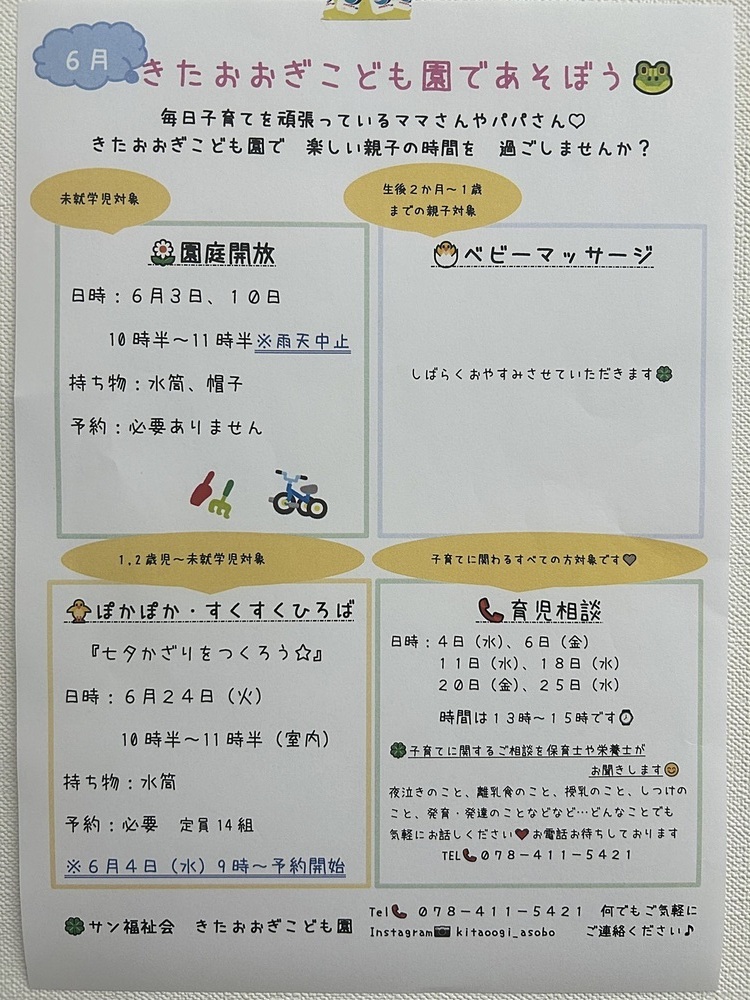 6月
きたおおぎこども園であそぼう
毎日子育てを頑張っているママさんやパパさん♡
きたおおぎこども園で 楽しい親子の時間を 過ごしませんか？
未就学児対象
園庭開放
日時：６月３日、１０日
10時半～11時半※雨天中止
持ち物：水筒、帽子
予約：必要ありません
生後２か月～１歳
までの親子対象
ベビーマッサージ
しばらくおやすみさせていただきます🍀
1.2歳児～未就学児対象
ぽかぽか・すくすくひろば
『七夕かざりをつくろう☆』
日時：６月２４日（火）
10時半～11時半（室内）
持ち物：水筒
予約：必要 定員14組
※６月４日（水）９時～予約開始
子育てに関わるすべての方対象です♥
📞育児相談
日時：４日（水）、６日（金）
１１日（水）、１８日（水）
２０日（金）、２５日（水）
時間は１３時～１５時です⌚
🍀子育てに関するご相談を保育士や栄養士が
お聞きします😊
夜泣きのこと、離乳食のこと、授乳のこと、しつけの
こと、発育・発達のことなどなど…どんなことでも
気軽にお話しください♥お電話お待ちしております
TEL📞０７８－４１１－５４２１
🍀サン福祉会 きたおおぎこども園
Tel📞 ０７８－４１１－５４２１ 何でもご気軽に
Instagram📷kitaoogi_asobo ご連絡ください♪